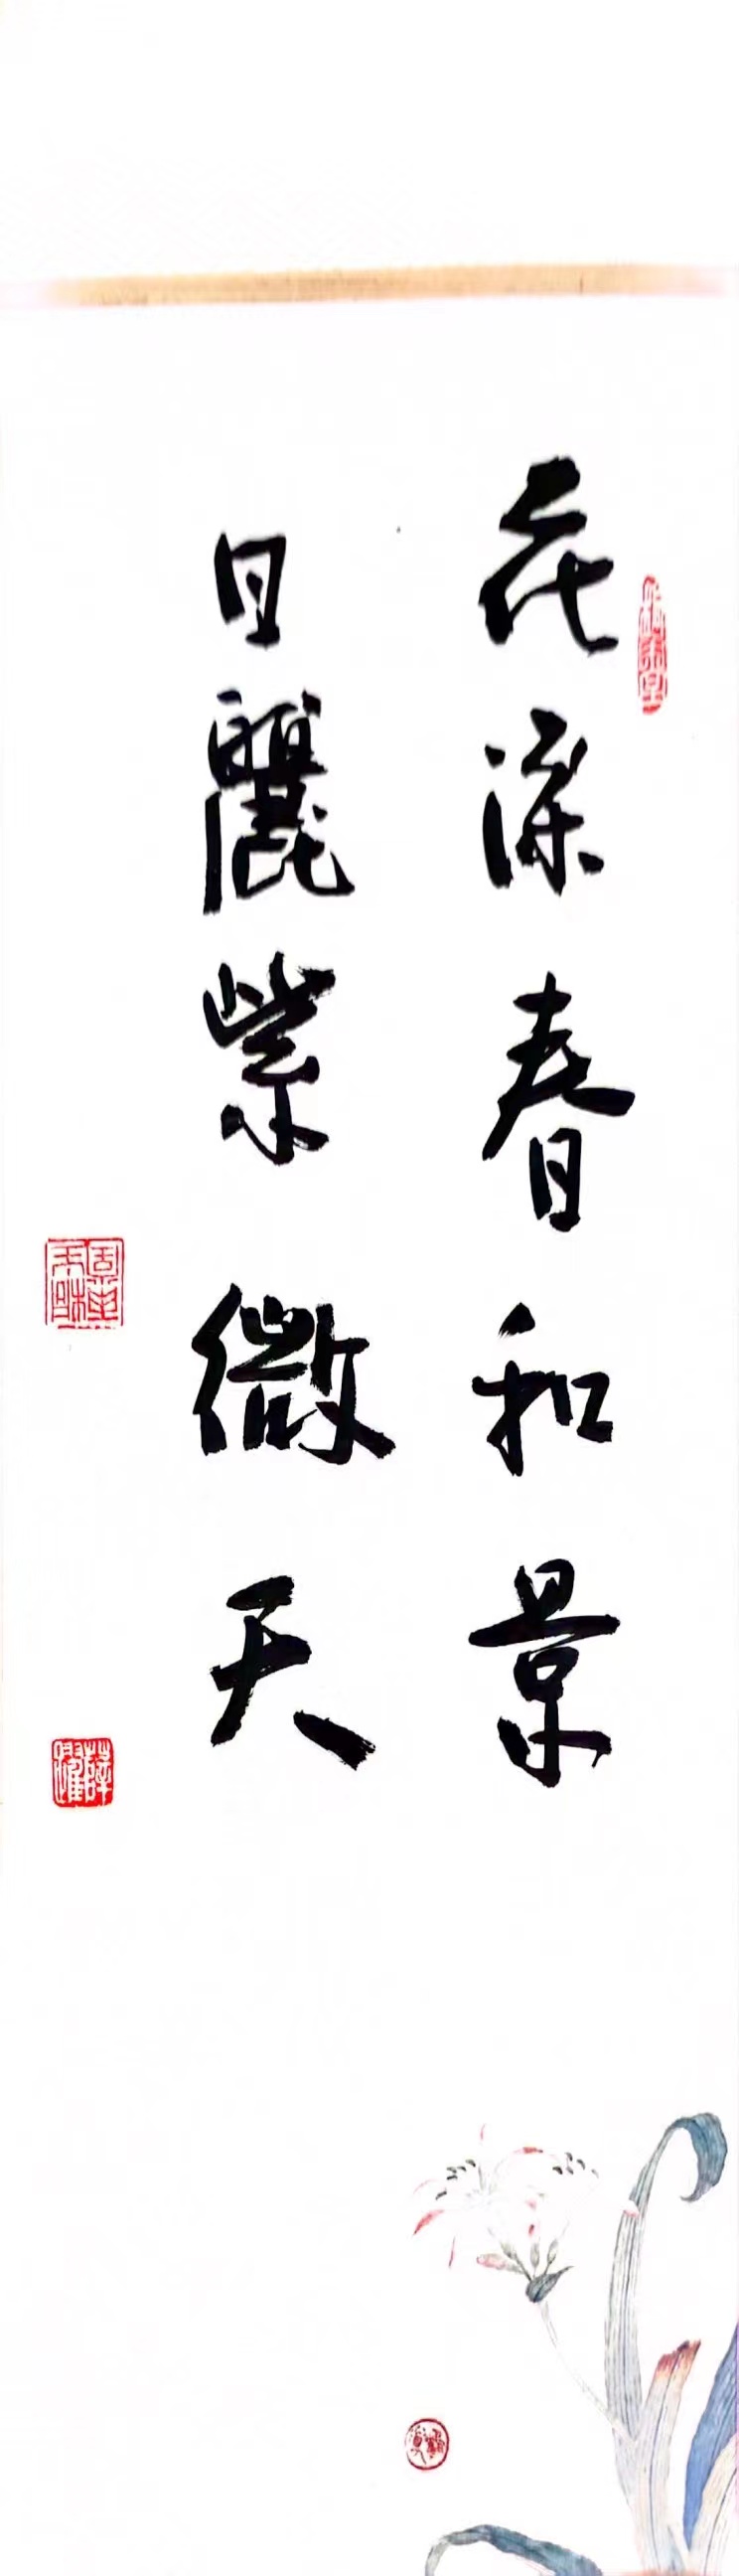 花深春和景
日麗紫微天